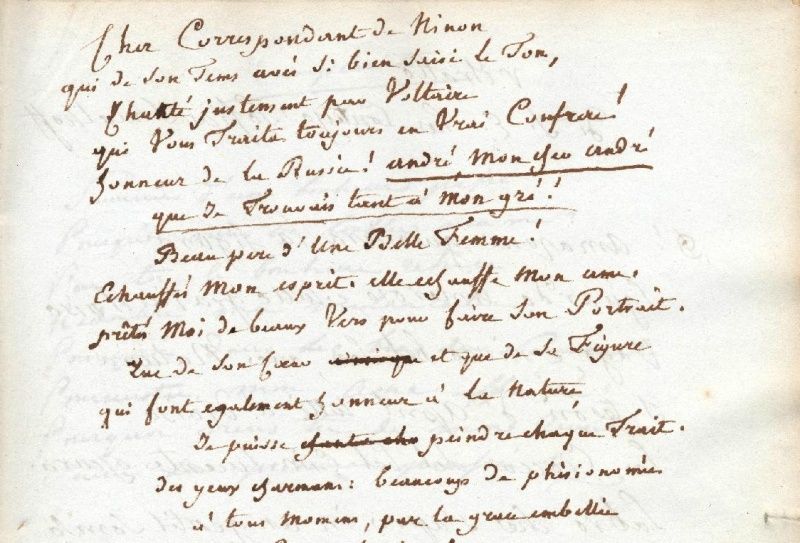 Cher Correspondant de Ninon
qui de son Tems avés si bien saisi le Ton,
Chanté justement par Voltaire
qui Vous Traita toujours en Vrai Confrere!
honneur de la Russie! andré mon cher andré
que Je Trouvais tant à mon gré!
Beau pere d'Une Belle Femme!
Echauffés mon esprit. elle echauffe mon ame.
prêtés Moi de beaux Vers pour faire son Portrait.
Que de son Coeur et que de Sa Figure
qui font egalement honneur à la Nature
Je puisse peindre chaque Trait.
des yeux charmans: beaucoup de phisionomie
à tous momens, par la grace embellie